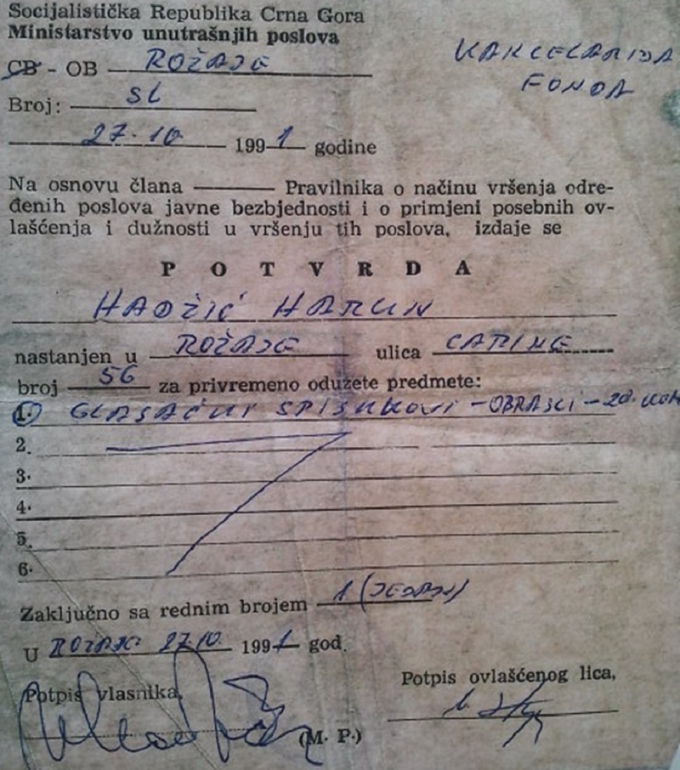 Socijalistička Republika Crna Gora
Ministarstvo unutrašnjih poslova
KANCELARIJA
FONDA
CB - OB ROŽAJE
Broj: Sl
27.10 1991 godine
Na osnovu člana ——— Pravilnika o načinu vršenja odre-
đenih poslova javne bezbjednosti i o primjeni posebnih ov-
lašćenja i dužnosti u vršenju tih poslova, izdaje se
P O T V R D A
HADŽIĆ HARUN
nastanjen u ROŽAJE ulica CARINE
broj 56 za privremeno oduzete predmete:
1. GLASAČKI SPISKOVI - OBRASCI - 20 KOM
2.
3.
4.
5.
6.
Zaključno sa rednim brojem 1 (JEDAN)
U ROŽAJE 27.10. 1991 god.
Potpis vlasnika,
Potpis ovlašćenog lica,
(M. P.)